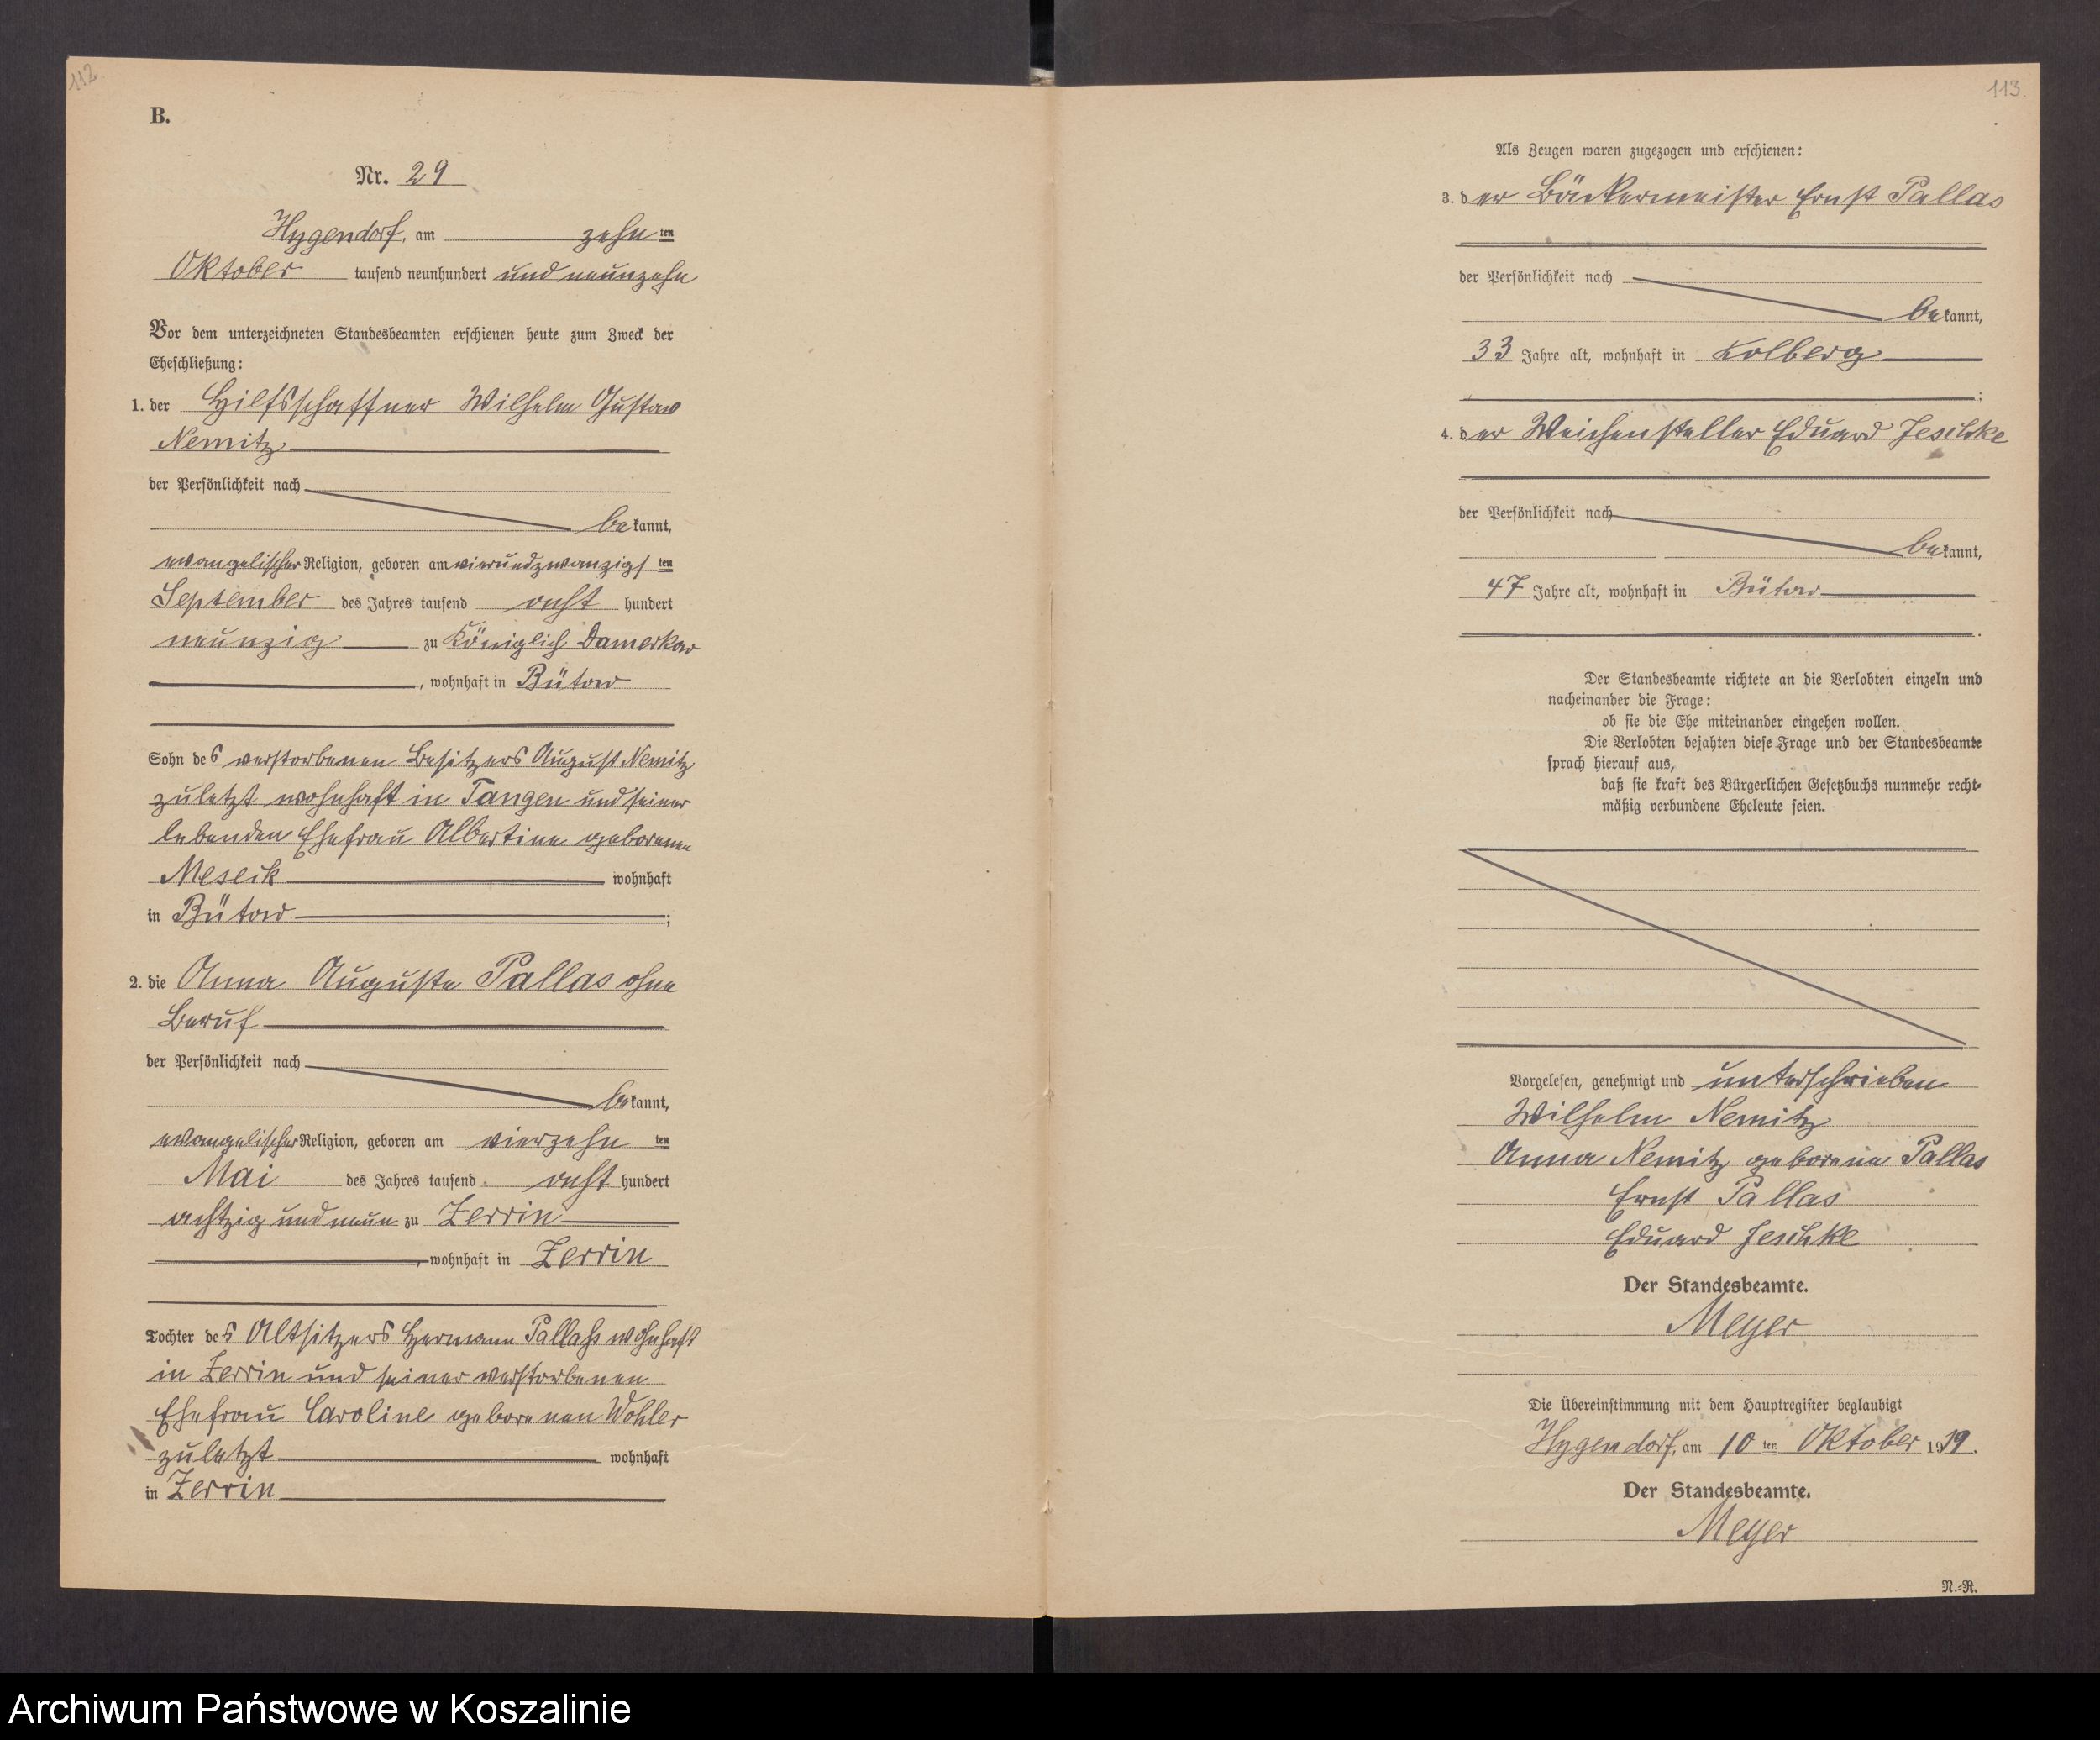 112
B.
Nr. 29
Hygendorf, am zehn ten
Oktober tausend neunhundert und neunzehn
Vor dem unterzeichneten Standesbeamten erschienen heute zum Zweck der
Eheschließung:
1. der Hilfsschaffner Wilhelm Gustav
Nemitz
der Persönlichkeit nach
bekannt,
evangelischer Religion, geboren am vierundzwanzigs ten
September des Jahres tausend acht hundert
neunzig zu Königlich Damerkow
, wohnhaft in Bütow
Sohn des verstorbenen Besitzers August Nemitz
zuletzt wohnhaft in Tangen und seiner
lebenden Ehefrau Albertine geborenen
Meseck wohnhaft
in Bütow ;
2. die Anna Auguste Pallas ohne
Beruf
der Persönlichkeit nach
bekannt,
evangelischer Religion, geboren am vierzehn ten
Mai des Jahres tausend acht hundert
achtzig und neun zu Zerrin
, wohnhaft in Zerrin
Tochter des Altsitzers Hermann Pallas wohnhaft
in Zerrin und seiner verstorbenen
Ehefrau Caroline geborenen Wohler
zuletzt wohnhaft
in Zerrin
113.
Als Zeugen waren zugezogen und erschienen:
3. der Bäckermeister Ernst Pallas
der Persönlichkeit nach
bekannt,
33 Jahre alt, wohnhaft in Kolberg
;
4. der Weichensteller Eduard Jeschke
der Persönlichkeit nach
bekannt,
47 Jahre alt, wohnhaft in Bütow
.
Der Standesbeamte richtete an die Verlobten einzeln und
nacheinander die Frage:
ob sie die Ehe miteinander eingehen wollen.
Die Verlobten bejahten diese Frage und der Standesbeamte
sprach hierauf aus,
daß sie kraft des Bürgerlichen Gesetzbuchs nunmehr recht-
mäßig verbundene Eheleute seien.
Vorgelesen, genehmigt und unterschrieben
Wilhelm Nemitz
Anna Nemitz geborene Pallas
Ernst Pallas
Eduard Jeschke
Der Standesbeamte.
Meyer
Die Übereinstimmung mit dem Hauptregister beglaubigt
Hygendorf, am 10 ten Oktober 1919.
Der Standesbeamte.
Meyer
N.-R.
Archiwum Państwowe w Koszalinie